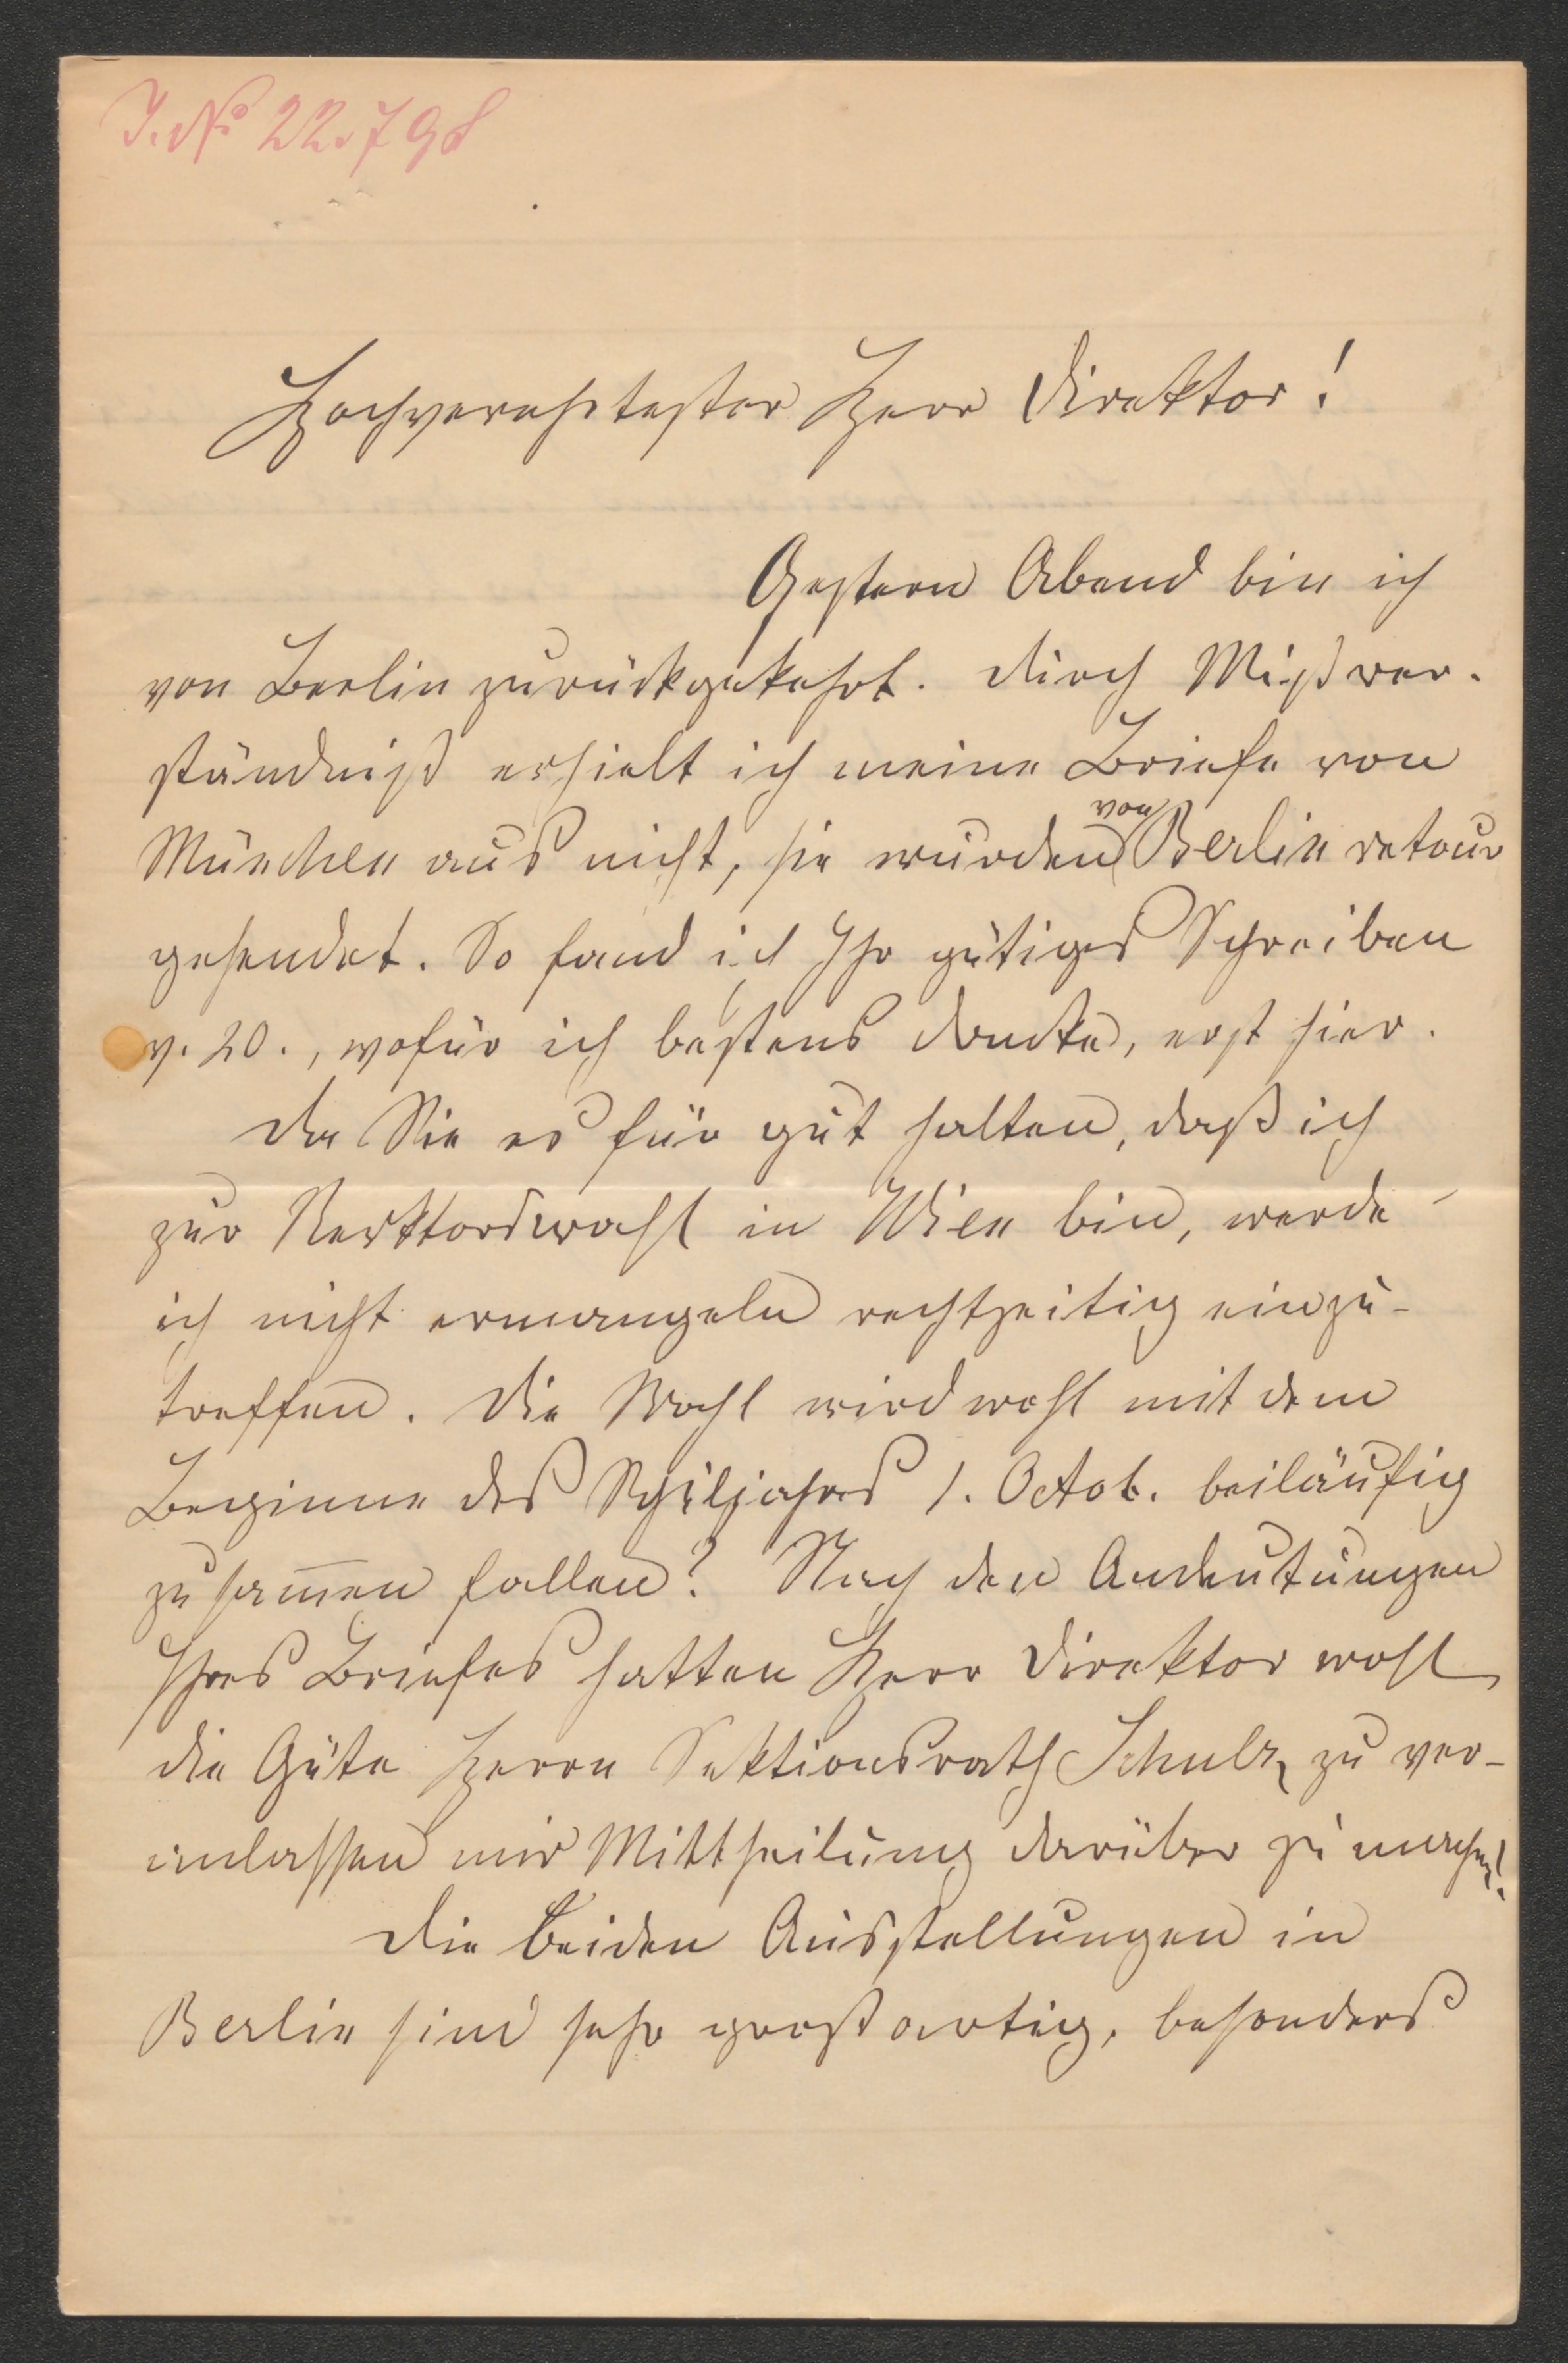 J. No 22.798
Hochverehrtester Herr Direktor!
Gestern Abend bin ich
von Berlin zurückgekehrt. Durch Mißver-
ständniß erhielt ich meine Briefe von
München aus nicht, sie wurden von Berlin retour
gesendet. So fand ich Ihr gütiges Schreiben
v. 20., wofür ich bestens danke, erst hier.
Da Sie es für gut halten, daß ich
zur Recktorswahl in Wien bin, werde
ich nicht ermangeln rechtzeitig einzu-
treffen. Die Wahl wird wohl mit dem
Beginne des Schuljahres 1. Octob. beiläufig
zusam̅en fallen? Nach den Andeutungen
Ihres Briefes hatten Herr Direktor wohl
die Güte Herrn Sektionsrath Schulz, zu ver-
anlassen mir Mittheilung darüber zu machen!
Die beiden Ausstellungen in
Berlin sind sehr großartig, besonders